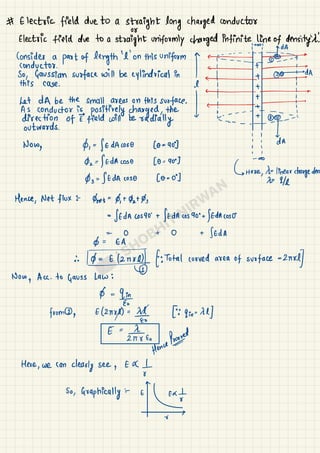 # Electric field due to a straight long charged conductor
or
Electric field due to a straight uniformly charged infinite line of density 'λ'.
Consider a part of length 'l' on this uniform
conductor.
So, Gaussian surface will be cylindrical in
this case.
Let dA be the small areas on this surface.
As conductor is positively charged, the
direction of E field will be radially
outwards.
+∞
dA
①
②
dA
l
③
dA
-∞
Here, λ = linear charge den
λ = q/l
Now, ϕ₁ = ∫EdA cosθ [θ = 90°]
ϕ₂ = ∫EdA cosθ [θ = 90°]
ϕ₃ = ∫EdA cosθ [θ = 0°]
Hence, Net flux :- ϕnet = ϕ₁ + ϕ₂ + ϕ₃
= ∫EdA cos90° + ∫EdA cos90° + ∫EdA cos0°
= 0 + 0 + ∫EdA
ϕ = EA
∴ ϕ = E (2πrl) [∵ Total curved area of surface = 2πrl]
①
Now, Acc. to Gauss Law:
ϕ = qin/ε₀
from ①, E(2πrl) = λl/ε₀ [∵ qin = λl]
E = λ/2πrε₀
Hence Proved
Here, we can clearly see, E ∝ 1/r
So, Graphically :-
E
E ∝ 1/r
r
SHOBHIT NIRWAN